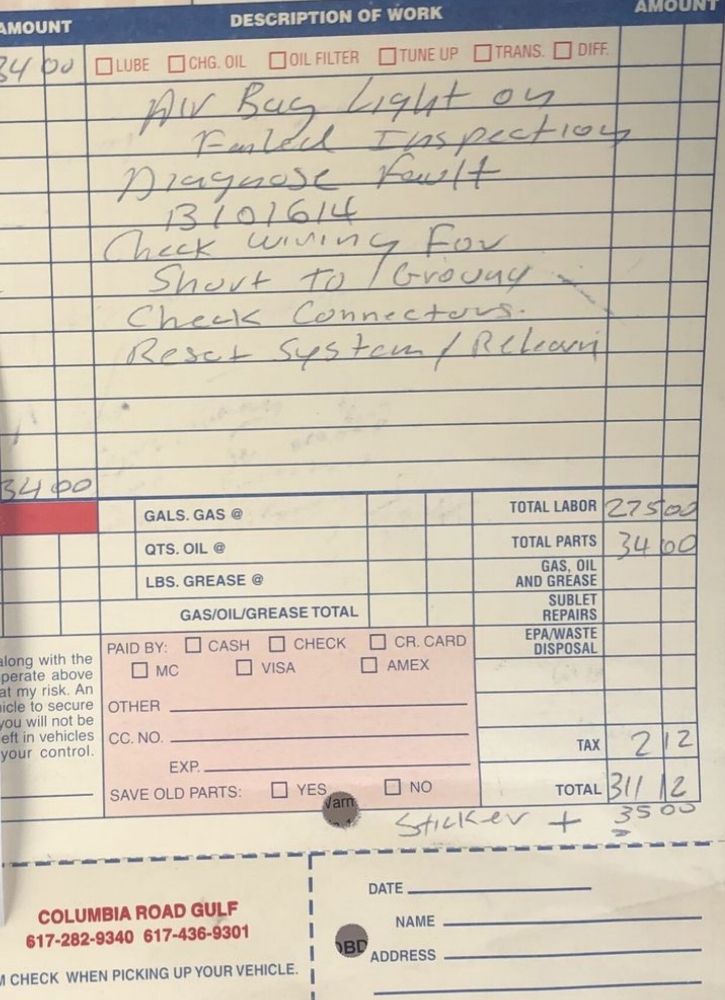 AMOUNT DESCRIPTION OF WORK AMOUNT
34 00 LUBE CHG. OIL OIL FILTER TUNE UP TRANS. DIFF.
Air Bag Light on
Failed Inspection
Diagnose Fault
B101614
Check wiring For
Short to / Ground
Check Connectors.
Reset System / Relearn
34 00
GALS. GAS @ TOTAL LABOR 275 00
QTS. OIL @ TOTAL PARTS 34 00
LBS. GREASE @ GAS, OIL
AND GREASE
GAS/OIL/GREASE TOTAL SUBLET
REPAIRS
PAID BY: CASH CHECK CR. CARD EPA/WASTE
DISPOSAL
MC VISA AMEX
along with the
perate above
at my risk. An
icle to secure
you will not be
eft in vehicles
your control.
OTHER
CC. NO. TAX 2 12
EXP.
SAVE OLD PARTS: YES NO TOTAL 311 12
Warn
Sticker + 35 00
COLUMBIA ROAD GULF
617-282-9340 617-436-9301
M CHECK WHEN PICKING UP YOUR VEHICLE.
DATE
NAME
OBD
ADDRESS